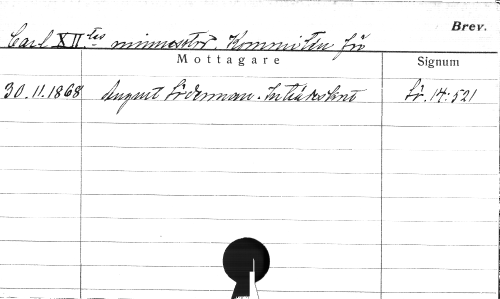 Brev.
Carl XII:tes minnesstod. Kommittén för
Mottagare
Signum
30.11.1868 August Söderman. Inträdeskort Sö. 14:521